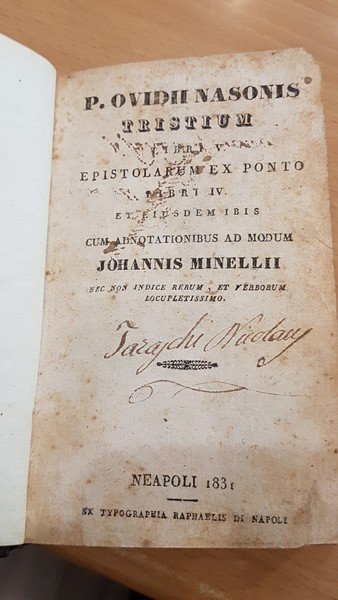 P. OVIDII NASONIS
TRISTIUM
LIBRI V.
EPISTOLARUM EX PONTO
LIBRI IV.
ET EJUSDEM IBIS
CUM ADNOTATIONIBUS AD MODUM
JOHANNIS MINELLII
NEC NON INDICE RERUM, ET VERBORUM
LOCUPLETISSIMO.
NEAPOLI 1831
EX TYPOGRAPHIA RAPHAELIS DI NAPOLI